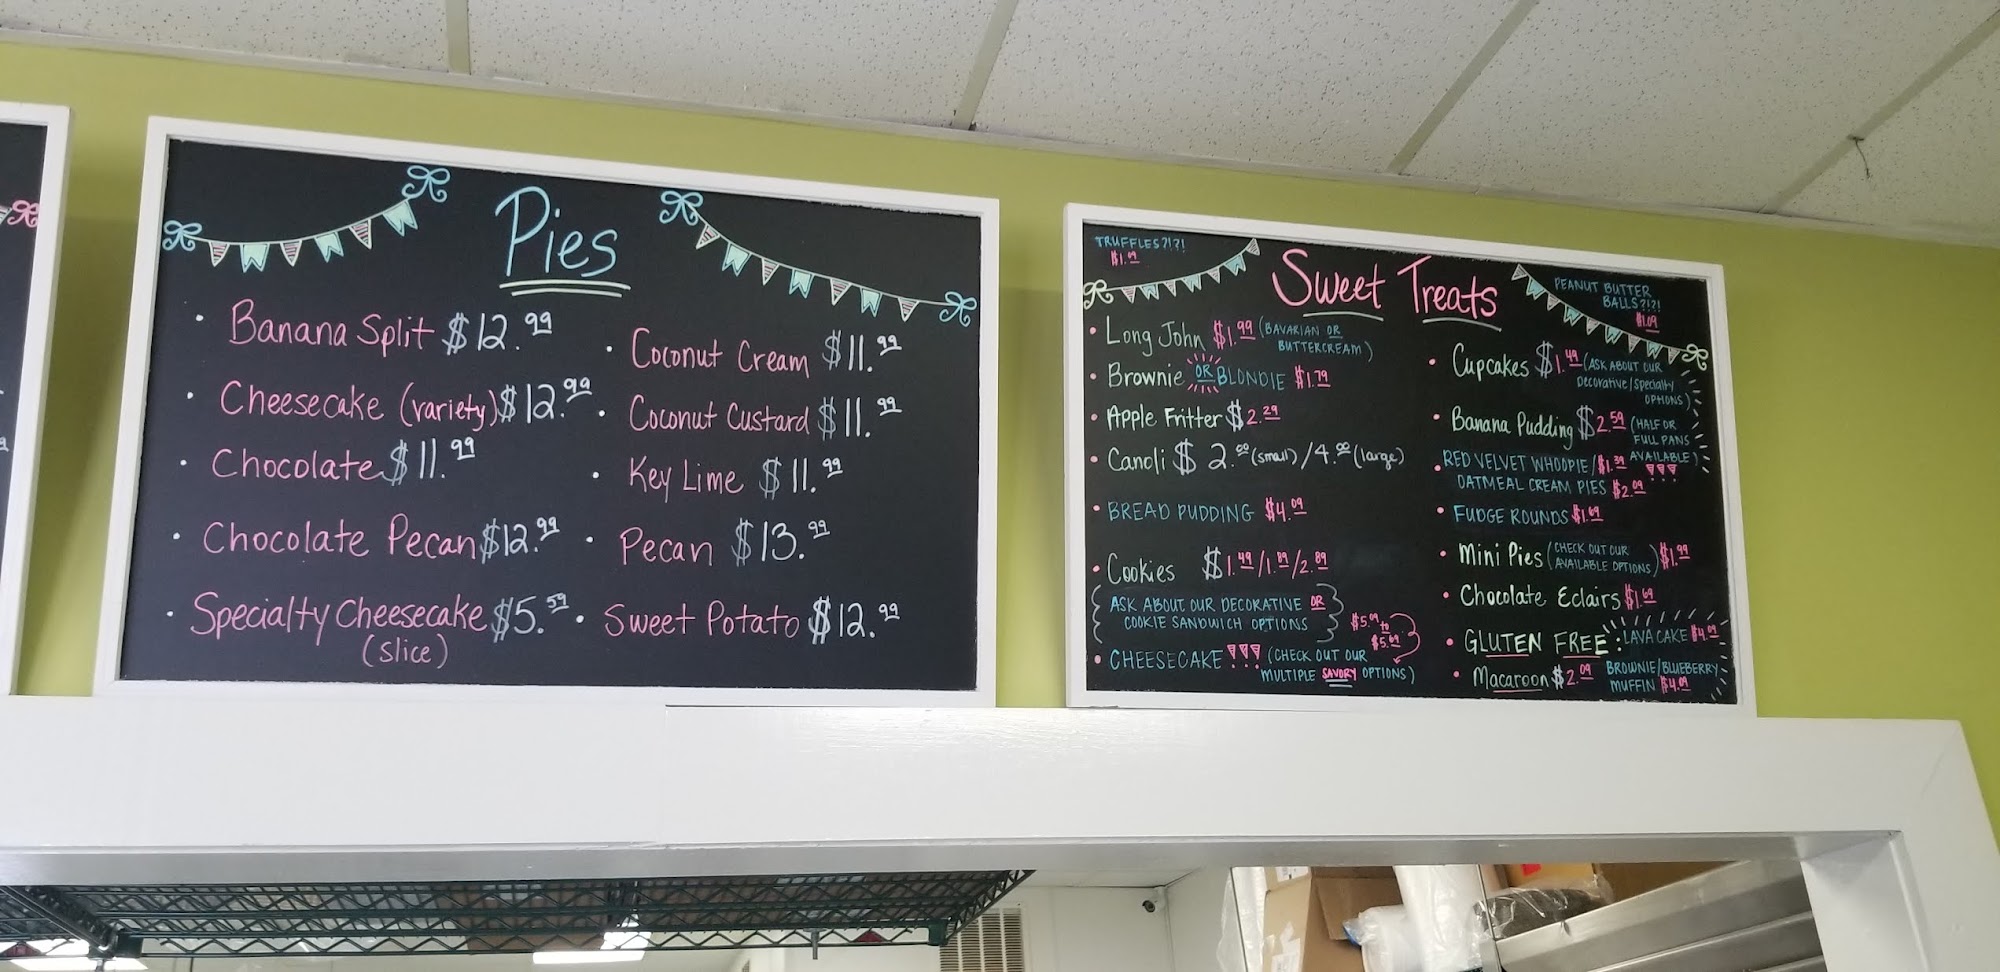 Pies
• Banana Split $12.99
• Cheesecake (variety) $12.99
• Chocolate $11.99
• Chocolate Pecan $12.99
• Specialty Cheesecake $5.59
(slice)
• Coconut Cream $11.99
• Coconut Custard $11.99
• Key Lime $11.99
• Pecan $13.99
• Sweet Potato $12.99
TRUFFLES?!?!
$1.09
Sweet Treats
PEANUT BUTTER
BALLS?!?!
$1.09
• Long John $1.99 (BAVARIAN OR
BUTTERCREAM)
• Brownie OR BLONDIE $1.79
• Apple Fritter $2.29
• Canoli $2.00 (small) / 4.00 (large)
• BREAD PUDDING $4.09
• Cookies $1.49/1.89/2.89
(ASK ABOUT OUR DECORATIVE OR
COOKIE SANDWICH OPTIONS)
$5.09
to
$5.69
• CHEESECAKE!!! (CHECK OUT OUR
MULTIPLE SAVORY OPTIONS)
• Cupcakes $1.49 (ASK ABOUT OUR
Decorative/Specialty
OPTIONS)
• Banana Pudding $2.59 (HALF OR
FULL PANS
AVAILABLE)
• RED VELVET WHOOPIE/$1.39 !!!
OATMEAL CREAM PIES $2.09
• FUDGE ROUNDS $1.69
• Mini Pies (CHECK OUT OUR
AVAILABLE OPTIONS) $1.99
• Chocolate Eclairs $1.69
• GLUTEN FREE: LAVA CAKE $4.09
• Macaroon $2.09 BROWNIE/BLUEBERRY
MUFFIN $4.09